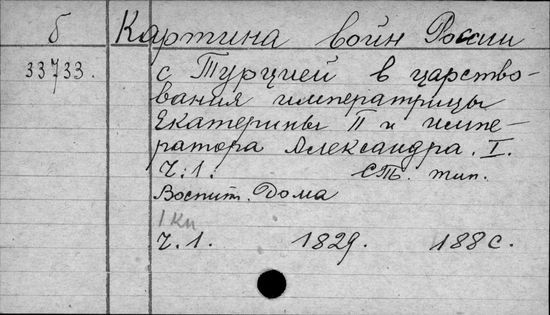 б Картина войн России
33733. с Турцией в царство-
вания императрицы
Екатерины II и импе-
ратора Александра. I.
Ч: 1. СТб. тип.
Воспит. Дома
1 кн
Ч. 1. 1829. 188 с.